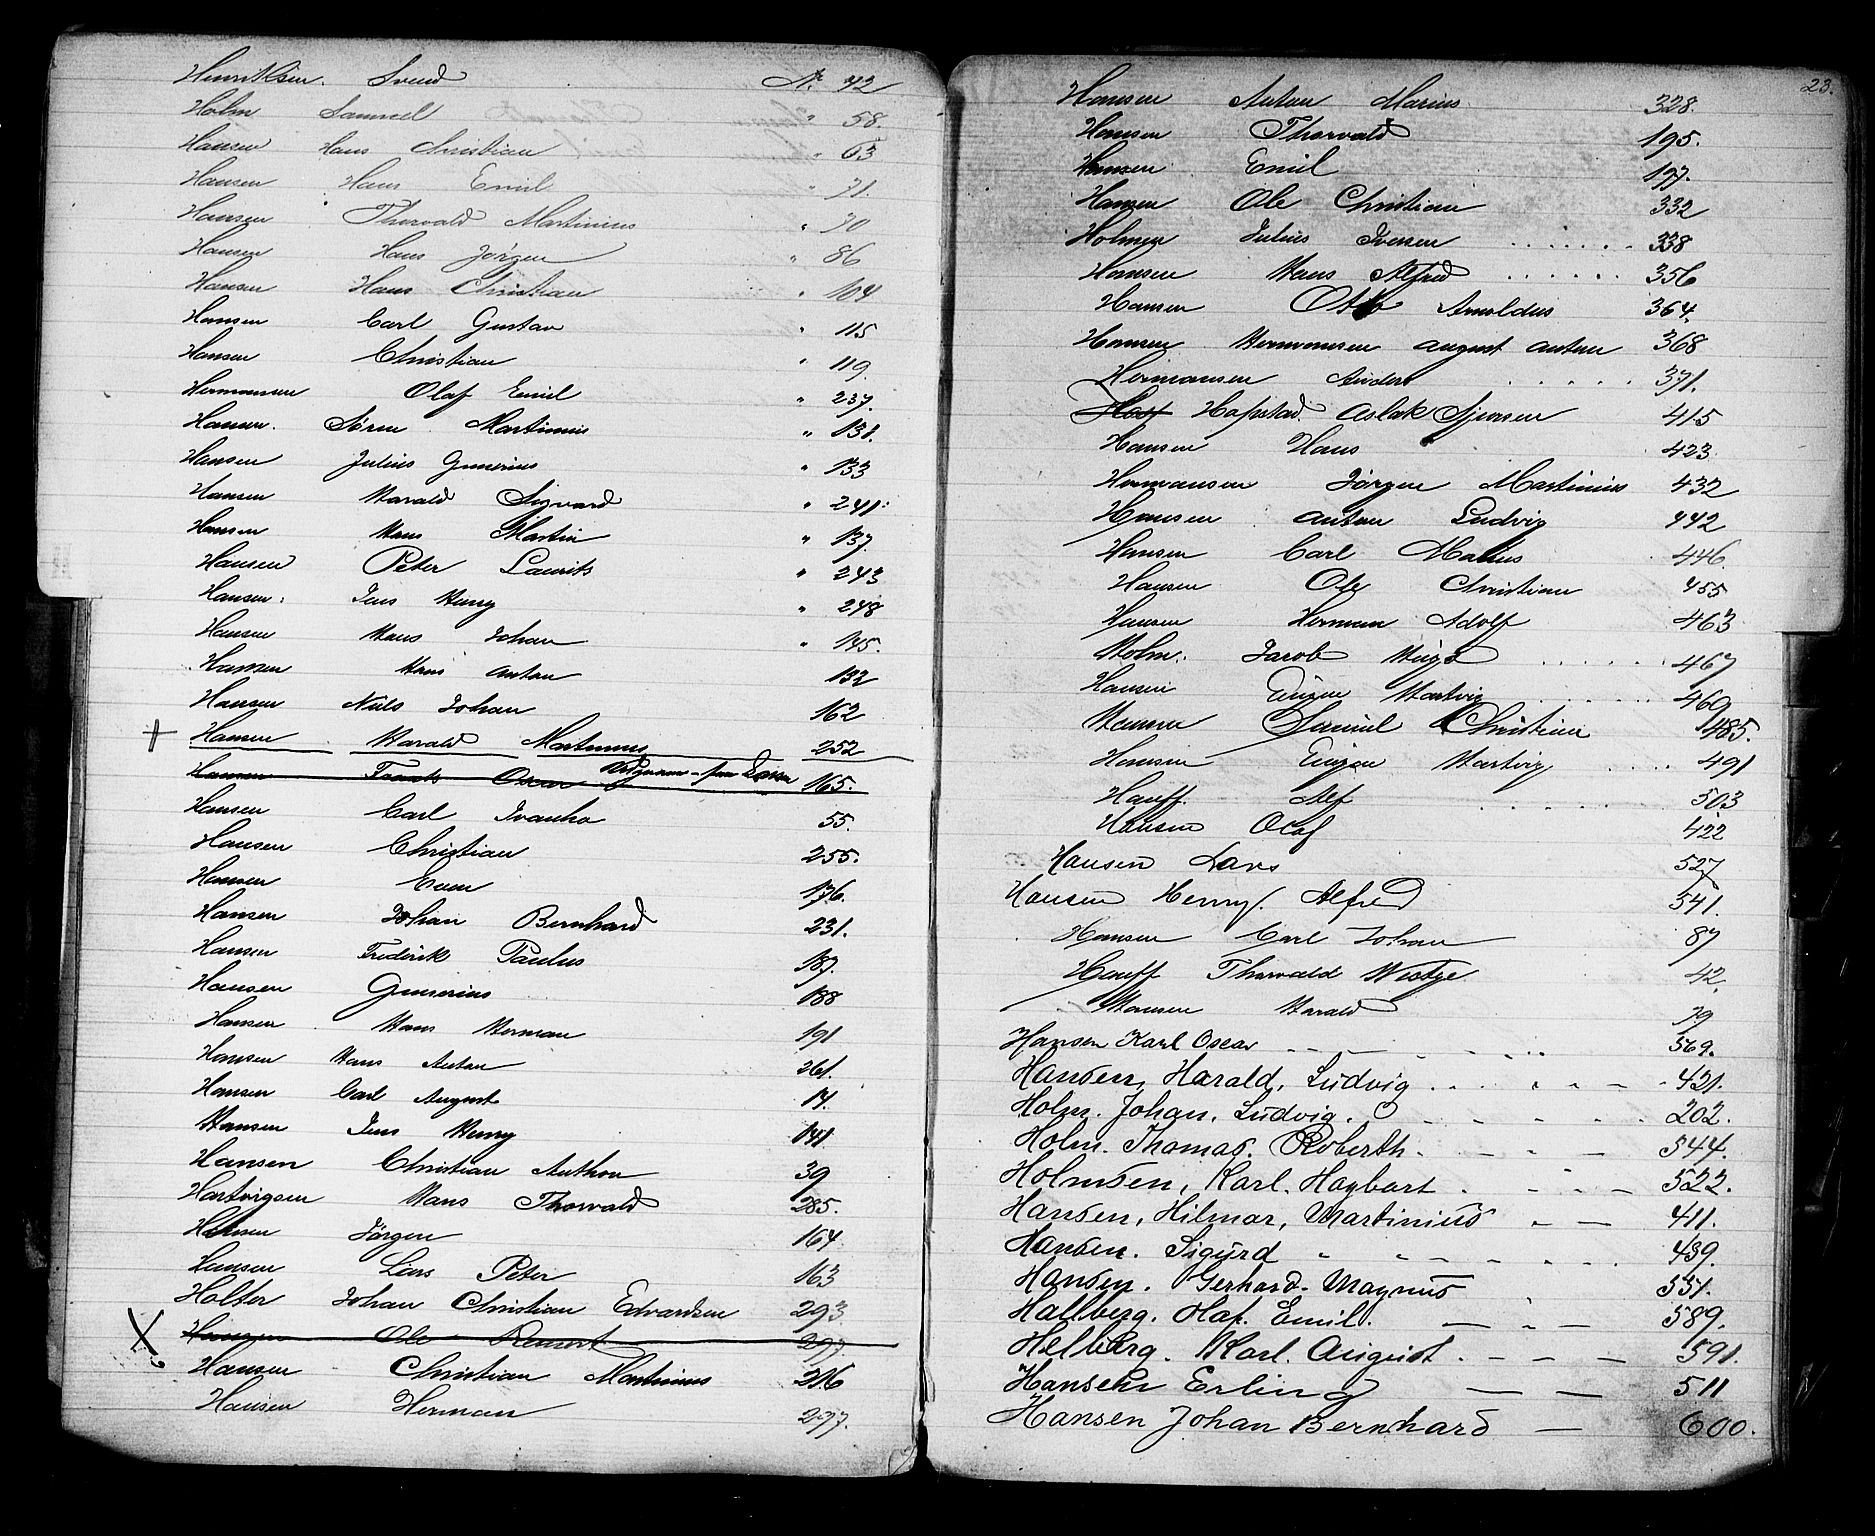 Henriksen. Svend Nr. 42
Holm Samuel " 58.
Hansen Hans Christian " 63
Hansen Hans Emil " 71.
Hansen Thorvald Martinius " 70
Hansen Hans Jørgen " 86
Hansen Hans Christian " 104
Hansen Carl Gustav " 115
Hansen Christian " 119.
Hermansen Olaf Emil " 237.
Hansen. Søren Martinius " 131.
Hansen Julius Gunerius " 133
Hansen Harald Sigvard " 241.
Hansen Hans Martin " 137.
Hansen Peter Laurits " 243
Hansen. Jens Henry " 248
Hansen Hans Johan " 145.
Hansen Hans Anton 132
Hansen Niels Johan 162
Hansen Harald Martinius 252
Hansen Oscar 165.
Hansen Carl Ivanho 55.
Hansen Christian 255.
Hansen 176.
Hansen Johan Bernhard 231.
Hansen Frederik Paulus 187.
Hansen Gunerius 188
Hansen Hans Herman 191
Hansen Hans Anton 261.
Hansen Carl August 14.
Hansen Jens Henry 141
Hansen Christian Anthon 39
Hartvigsen Hans Thorvald 285.
Hansen Jørgen 164
Hansen Lars Peter 163
Holter Johan Christian Edvardsen 293.
Ole 297.
Hansen Christian Martinius 216
Hansen Herman 277.
23.
Hansen Anton Marius 328.
Hansen Thorvald 195.
Hansen Emil 197.
Hansen Ole Christian 332
Holmen Julius Iversen 338
Hansen Hans Alfred 356
Hansen Otto Arnoldus 364.
Hansen Hermansen August Anton 368
Hermansen Anders 371.
Hafstad. Aslak Sjursen 415
Hansen Hans 423
Hermansen Jørgen Martinius 432
Hansen Anton Ludvig 442
Hansen Carl Marius 446.
Hansen Ole Christian 455
Hansen Herman Adolf 463
Holm. Jacob Hugo 467
Hansen Eugen Hartvig 469
Hansen Samuel Christian 485.
Hansen Eugen Hartvig 491
Hauff. Alf 503
Hansen Olaf 422
Hansen Lars 527
Hansen Henry. Alfred 541.
Hansen Carl Johan 87
Hauff Thorvald Wistye 42.
Hansen Harald 79
Hansen Karl Oscar 569.
Hansen, Harald, Ludvig 421.
Holm. Johan, Ludvig. O 202.
Holm. Thomas. Roberth. 544.
Holmsen, Karl. Hagbart 522.
Hansen, Hilmar, Martinius 411.
Hansen. Sigurd 439.
Hansen. Gerhard. Magnus 551.
Hallberg. Olaf. Emil. 589.
Helberg. Karl. August. 591.
Hansen Erling 511
Hansen Johan Bernhard 600.